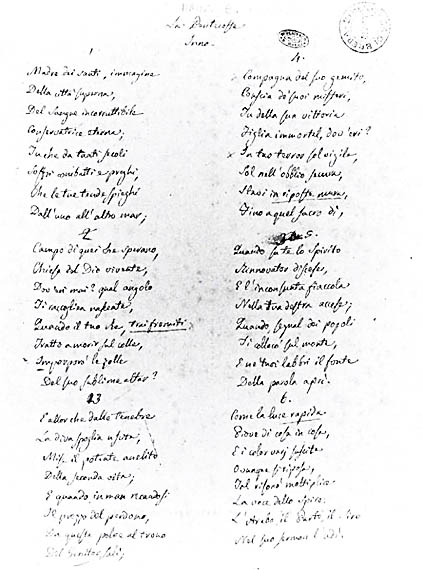 La Pentecoste
Inno.
1
Madre dei santi, immagine
Della città superna,
Del Sangue incorruttibile
Conservatrice eterna;
Tu che da tanti secoli
Soffri combatti e preghi,
Che le tue tende spieghi
Dall'uno all'altro mar;
2
Campo di quei che sperano,
Chiesa del Dio vivente,
Dov'eri mai? qual angolo
Ti raccogliea nascente,
Quando il tuo Re, trai fremiti
Tratto a morir sul colle,
Imporporò le zolle
Del suo sublime altar?
3
E allor che dalle tenebre
La diva spoglia uscita,
Mise il potente anelito
Della seconda vita;
E quando in man recandosi
Il prezzo del perdono,
Da questa polve al trono
Del Genitor salì;
4.
Compagna del suo gemito,
Conscia de' suoi misteri,
Tu della sua vittoria
Figlia immortal, dov'eri?
x In tuo terror sol vigile,
Sol nell'obblio secura,
Stavi in riposte mura,
Fino a quel sacro dì,
5.
Quando su te lo Spirito
Rinnovator discese,
E l'inconsunta fiaccola
Nella tua destra accese;
Quando, segnal dei popoli
Ti collocò sul monte,
E ne' tuoi labbri il fonte
Della parola aprì.
6.
Come la luce rapida
Piove di cosa in cosa,
E i color varj suscita
Ovunque si riposa;
Tal risonò moltiplice
La voce dello Spiro:
L'Arabo, il Parto, il Siro
Nel suo sermon l'udì.